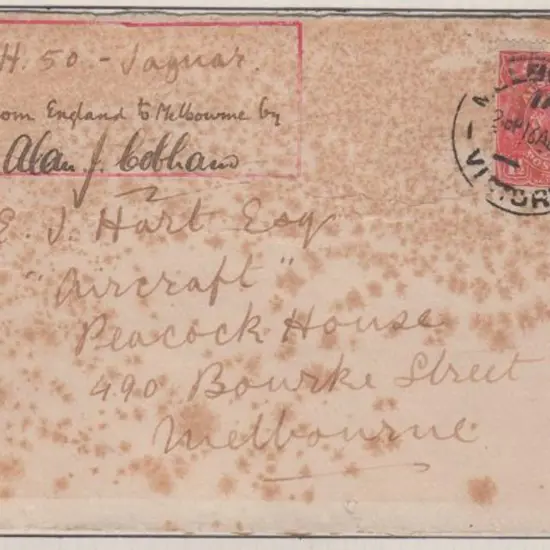 H. 50 - Jaguar.
from England to Melbourne by
Alan J. Cobham
E. J. Hart Esq
"Aircraft"
Peacock House
490 Bourke Street
Melbourne
MELB
VICTOR